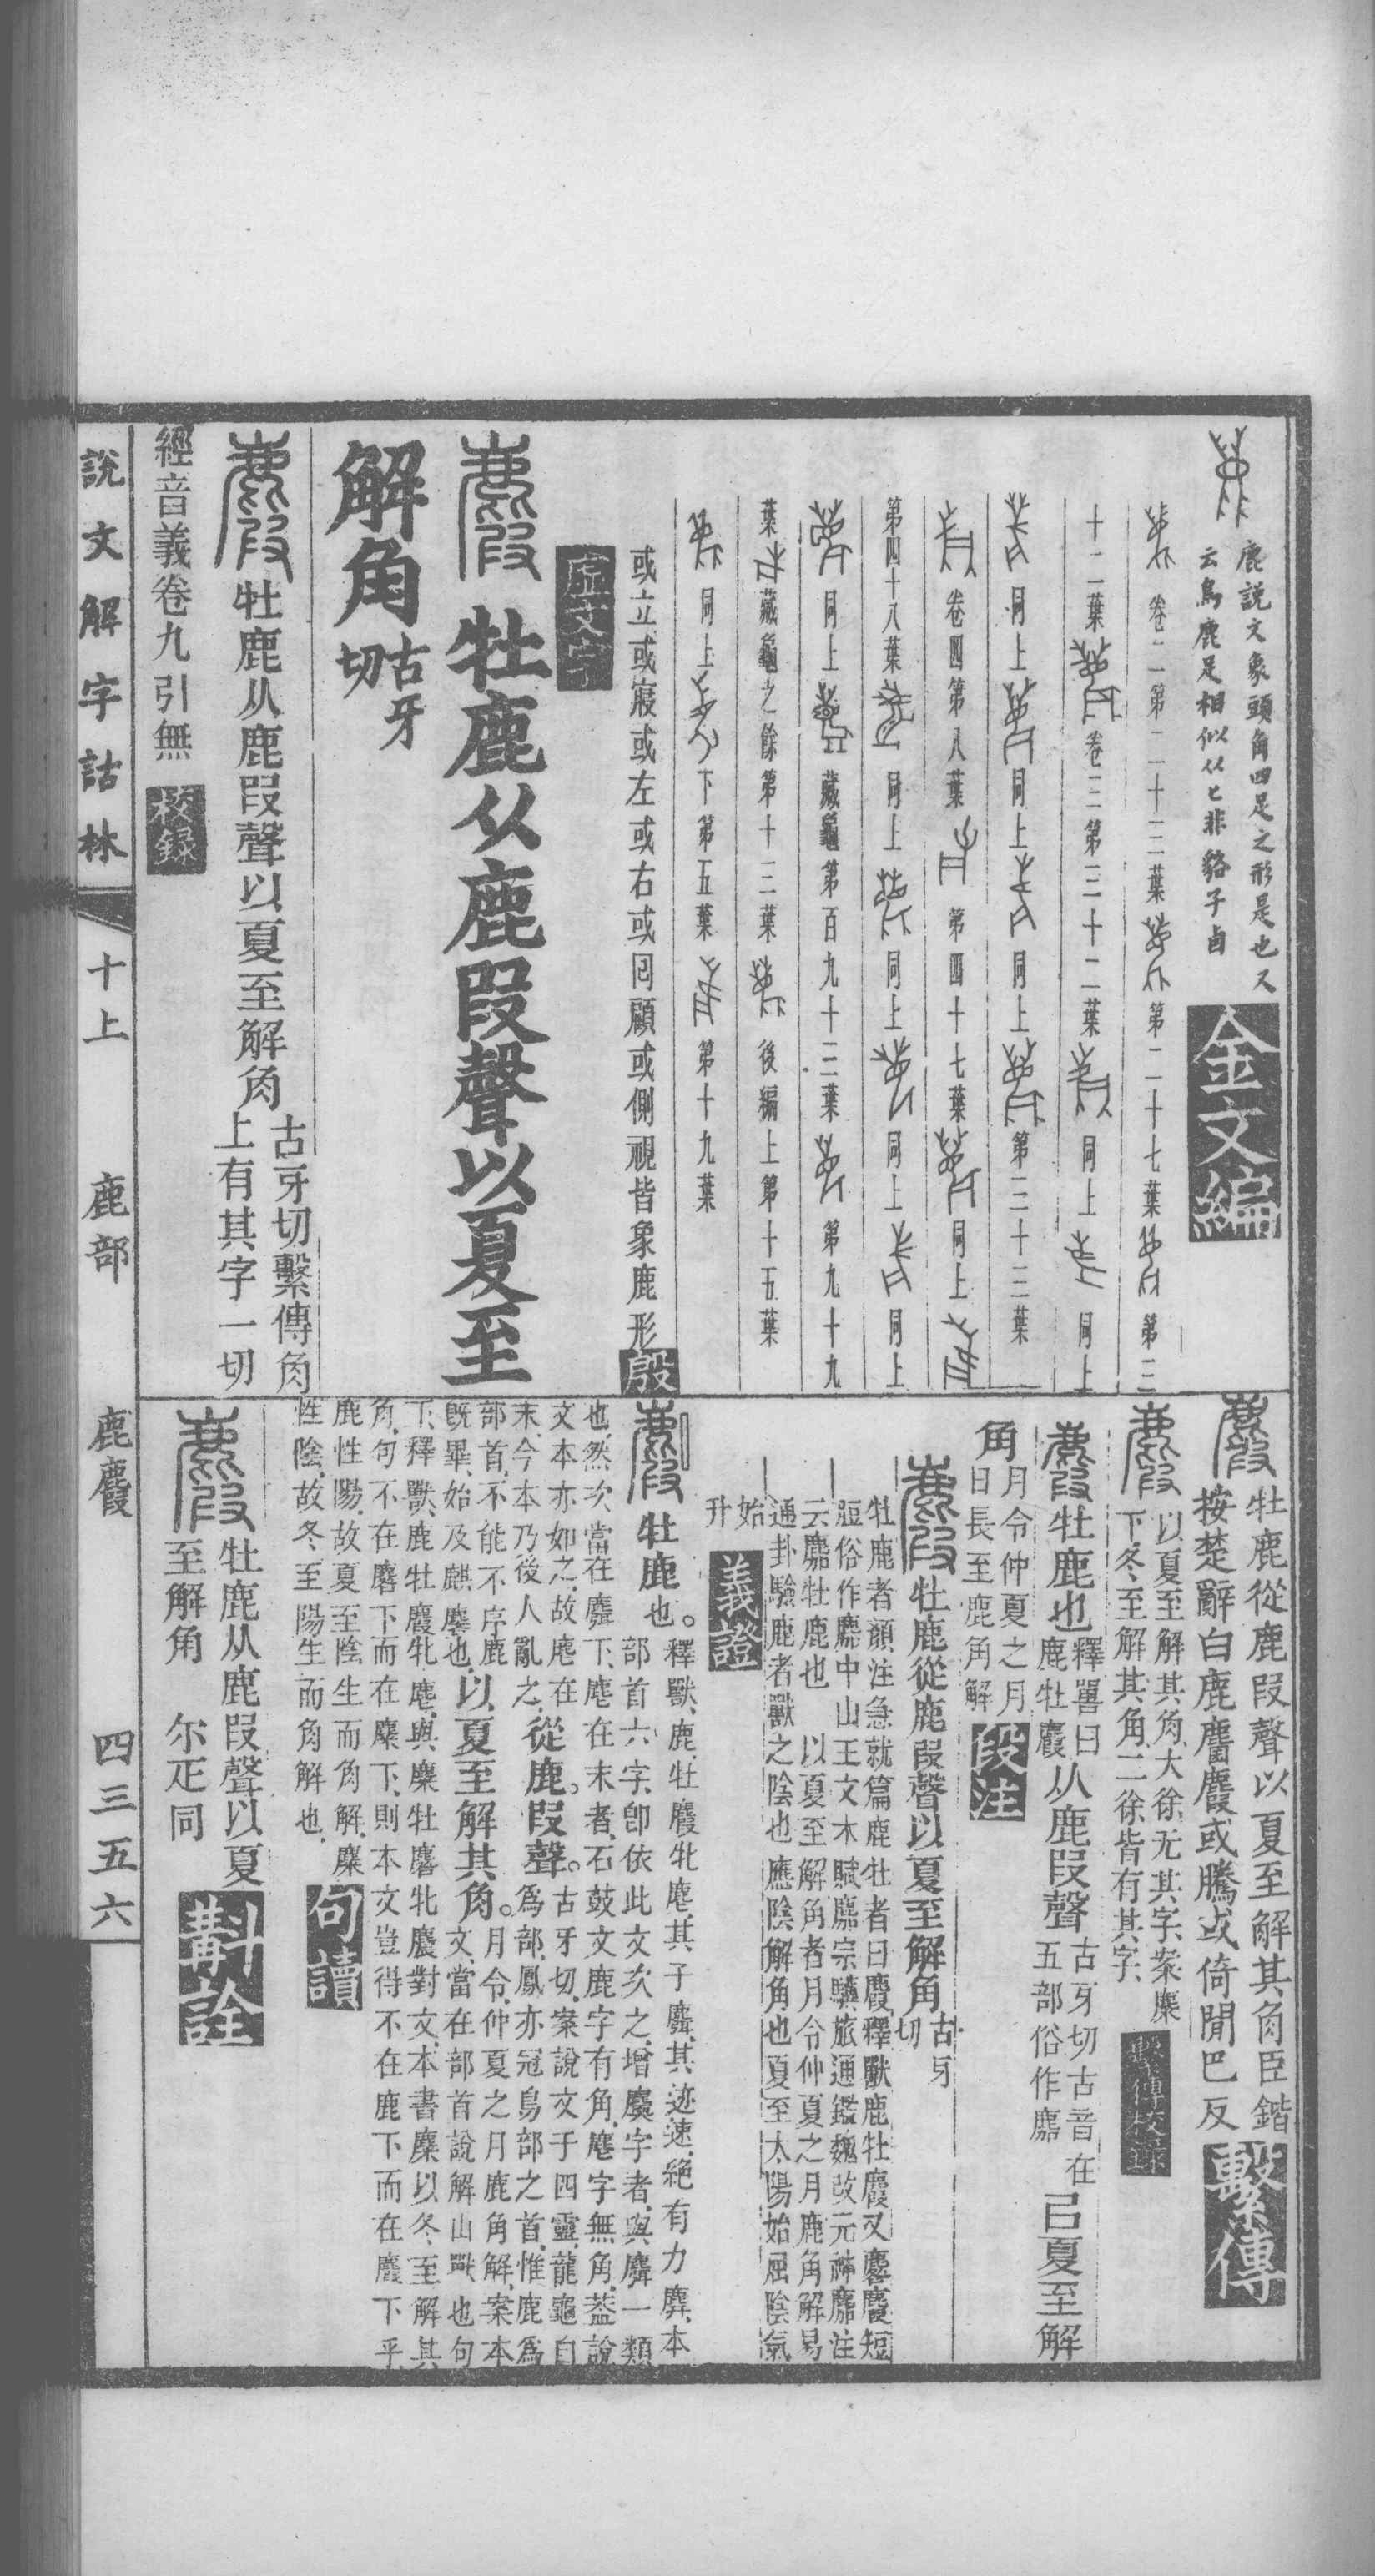 鹿說文象頭角四足之形是也又
云鳥鹿足相似从匕非貉子卣
金文編
卷二第二十三葉 第二十七葉 第三
十二葉 卷三第三十二葉 同上 同上
同上 同上 同上 第三十三葉
卷四第八葉 第四十七葉 同上
第四十八葉 同上 同上 同上 同上
同上 藏龜第百九十三葉 第九十九
葉 藏龜之餘第十三葉 後編上第十五葉
同上 下第五葉 第十九葉
或立或寢或左或右或回顧或側視皆象鹿形 殷
虛文字
麚 牡鹿从鹿叚聲以夏至
解角 古牙
切
麚 牡鹿从鹿叚聲以夏至解角 古牙切繫傳角
上有其字一切
經音義卷九引無 校録
麚 牡鹿從鹿叚聲以夏至解其角臣鍇
按楚辭白鹿麕麚或騰或倚閒巴反 繫傳
麚 以夏至解其角大徐无其字案麋
下冬至解其角二徐皆有其字 繫傳校録
麚 牡鹿也 釋嘼曰
鹿牡麚 从鹿叚聲 古牙切古音在
五部俗作麍 㠯夏至解
角 月令仲夏之月
日長至鹿角解 段注
麚 牡鹿從鹿叚聲以夏至解角 古牙
切
牡鹿者顏注急就篇鹿牡者曰麚釋獸鹿牡麚又麔麚短
脰俗作麍中山王文木賦麍宗驥旅通鑑魏改元神麍注
云麍牡鹿也 以夏至解角者月令仲夏之月鹿角解易
通卦驗鹿者獸之陰也應陰解角也夏至太陽始屈陰氣
始
升 義證
麚 牡鹿也。釋獸、鹿、牡麚牝麀、其子麛、其迹速、絕有力麉、本
部首六字、卽依此文次之、增麌字者、與麛一類
也、然次當在麤下、麀在末者、石鼓文鹿字有角、麀字無角、葢說
文本亦如之、故麀在 從鹿。叚聲。古牙切、案說文于四靈、龍龜自
末、今本乃後人亂之、 爲部、鳳亦冠鳥部之首、惟鹿爲
部首、不能不序鹿 以夏至解其角。月令、仲夏之月鹿角解、案本
旣畢、始及麒麐也、 文、當在部首說解山獸也句
下、釋獸、鹿牡麚牝麀、與麋牡麔牝麎對文、本書麋以冬至解其
角、句不在麔下而在麋下、則本文豈得不在鹿下而在麚下乎、
鹿性陽、故夏至陰生而角解、麋
性陰、故冬至陽生而角解也、 句讀
麚 牡鹿从鹿叚聲以夏
至解角 尔疋同 斠詮
說文解字詁林 十上 鹿部 鹿麚 四三五六